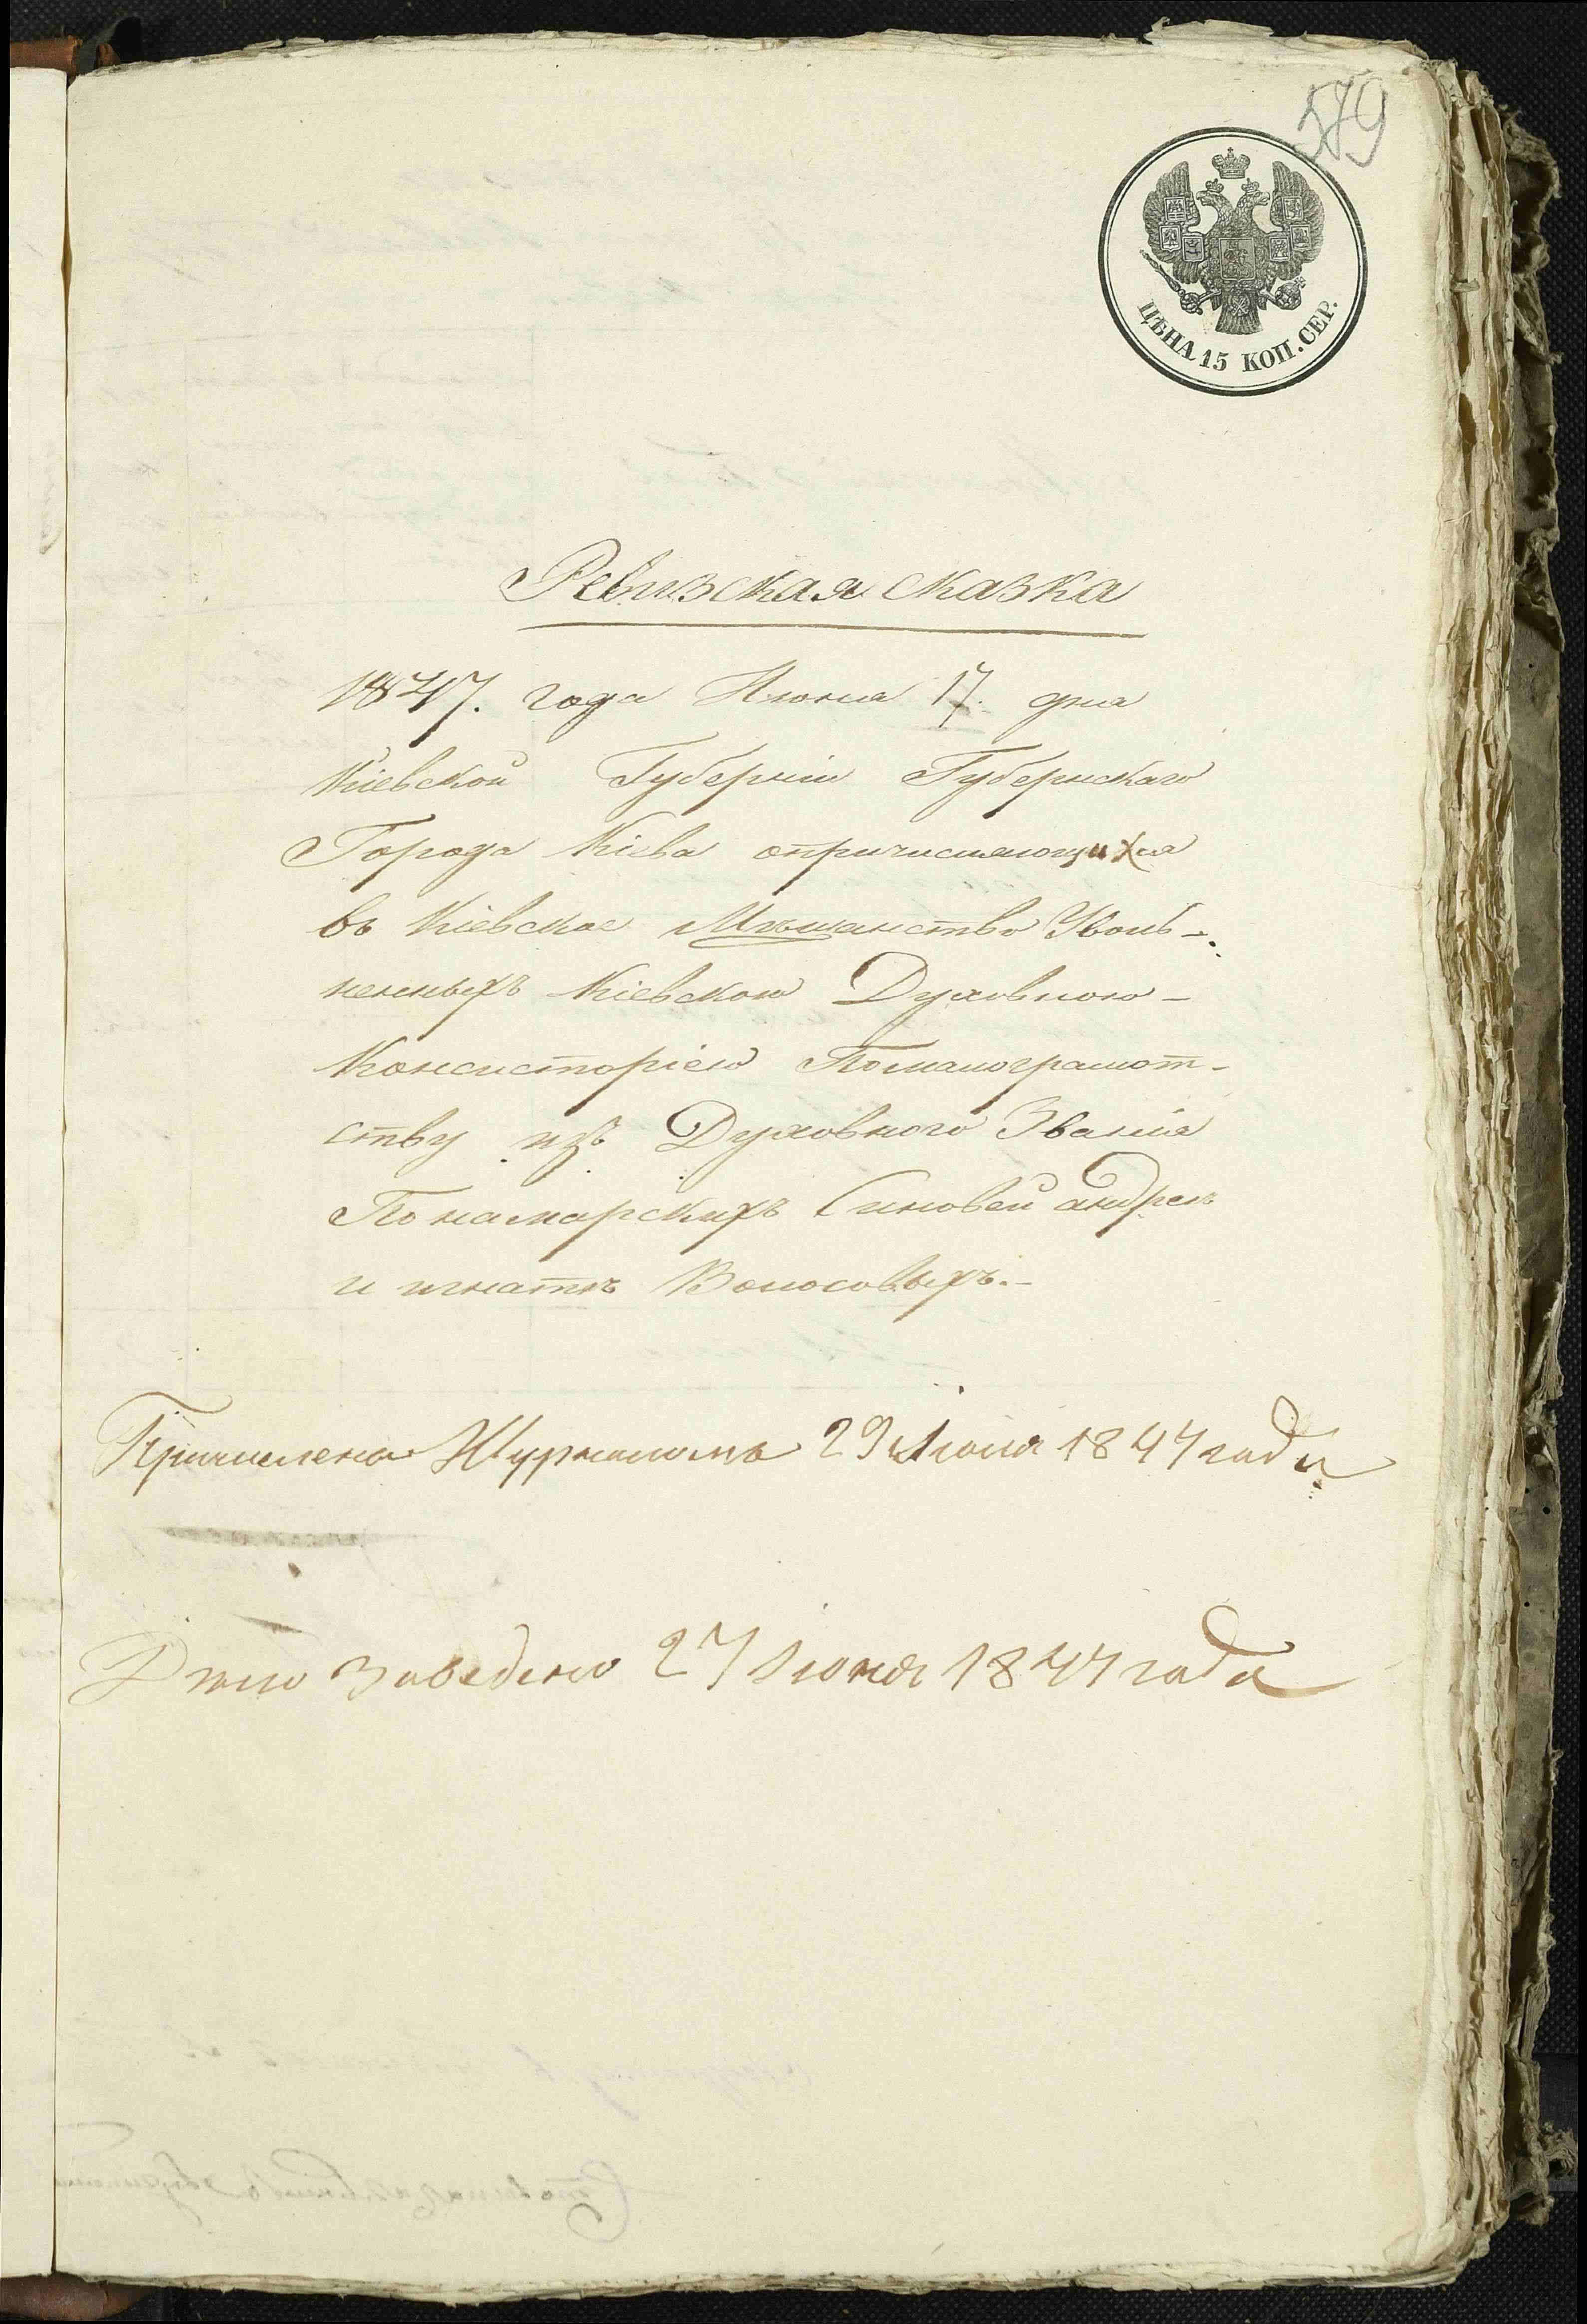 579
ЦѢНА 15 КОП. СЕР.
Ревизская сказка
1847. года Июня 17. дня
Кіевской Губерніи Губернскаго
Города Кіева опричисляющихся
въ Кіевское Мѣщанство Уволь-
ненныхъ Кіевскою Духовною-
Консисторіею Помалограмот-
ству изъ Духовного Званія
Понамарскихъ Синовей андрея
и игната Волосовыхъ.-
Причислена Журналомъ 29 Июля 1847 года
Дѣло заведено 27 Июня 1847 года